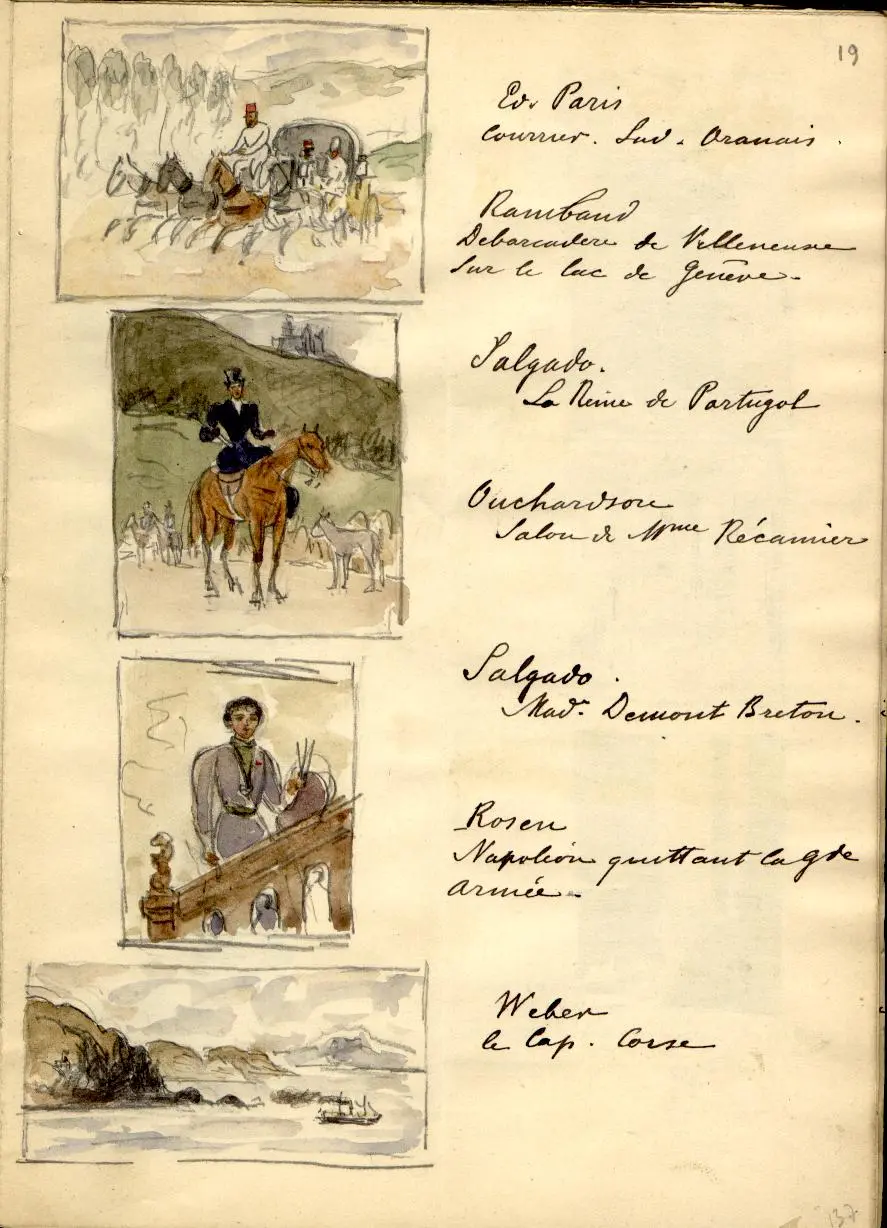 19
Ed. Paris
Courrier. Sud. Oranais.
Rambaud
Debarcadere de Villeneuve
Sur le lac de Genève.
Salgado.
La Reine de Portugal
Ouchardson
Salon de Mme Récamier
Salgado.
Made. Demont Breton.
Rosen
Napoléon quittant la Gde
Armée.
Weber
le Cap. Corse
137